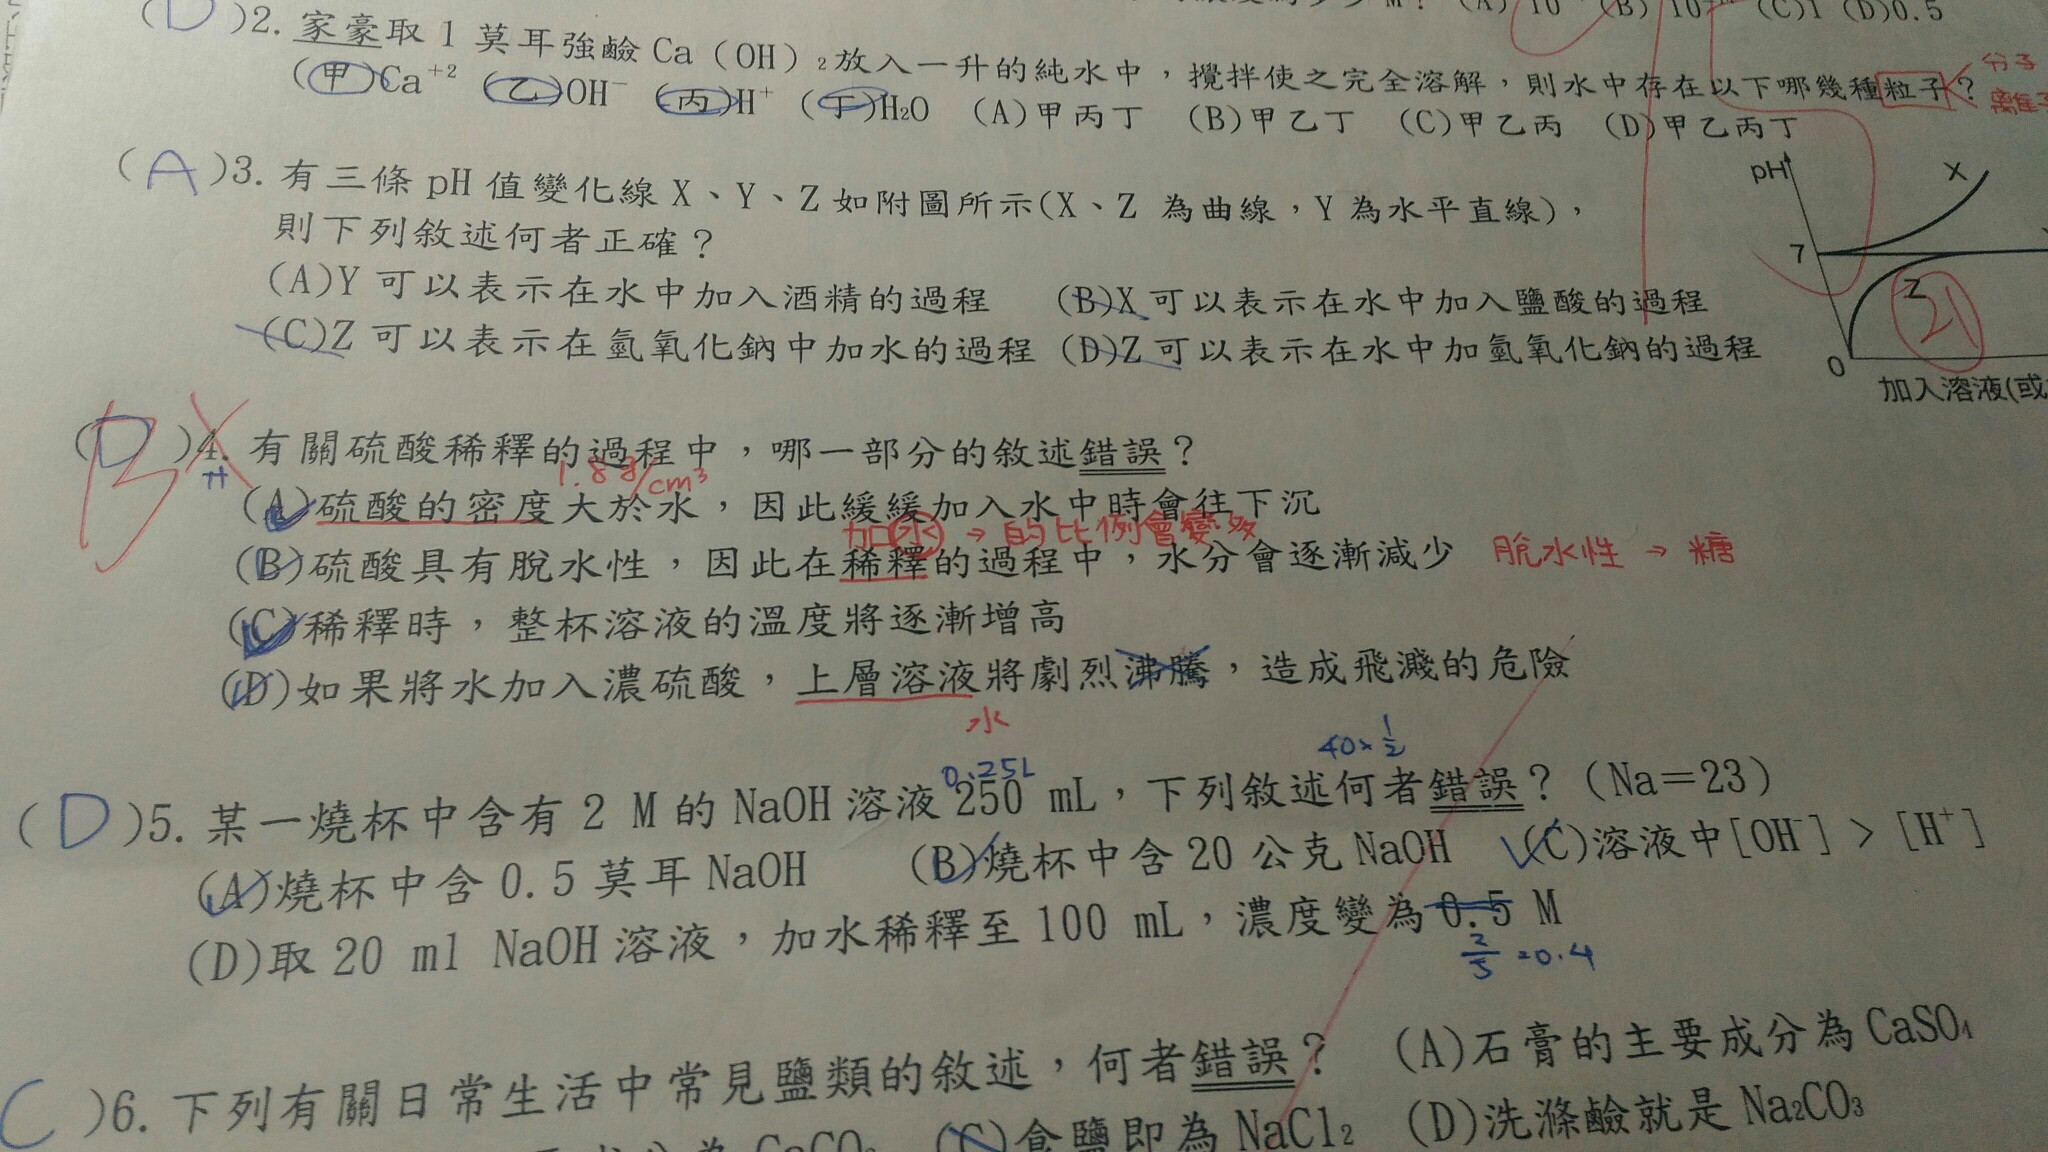 M? (A) 10 (B) 10 (C)1 (D)0.5
(D)2. 家豪取 1 莫耳強鹼 Ca(OH)₂放入一升的純水中，攪拌使之完全溶解，則水中存在以下哪幾種粒子？
分子
(甲)Ca⁺² (乙)OH⁻ (丙)H⁺ (丁)H₂O (A)甲丙丁 (B)甲乙丁 (C)甲乙丙 (D)甲乙丙丁
(A)3. 有三條 pH 值變化線 X、Y、Z 如附圖所示(X、Z 為曲線，Y 為水平直線)，
則下列敘述何者正確？
(A)Y 可以表示在水中加入酒精的過程 (B)X 可以表示在水中加入鹽酸的過程
(C)Z 可以表示在氫氧化鈉中加水的過程 (D)Z 可以表示在水中加氫氧化鈉的過程
pH
X
7
Z
21
0
加入溶液(或
B
(D)4. 有關硫酸稀釋的過程中，哪一部分的敘述錯誤？
1.8g/cm³
(A)硫酸的密度大於水，因此緩緩加入水中時會往下沉
加水→的比例會變多
(B)硫酸具有脫水性，因此在稀釋的過程中，水分會逐漸減少 脫水性→糖
(C)稀釋時，整杯溶液的溫度將逐漸增高
(D)如果將水加入濃硫酸，上層溶液將劇烈沸騰，造成飛濺的危險
水
0.25L 40×1/2
(D)5. 某一燒杯中含有 2 M 的 NaOH 溶液 250 mL，下列敘述何者錯誤？(Na＝23)
(A)燒杯中含 0.5 莫耳 NaOH (B)燒杯中含 20 公克 NaOH (C)溶液中[OH⁻] > [H⁺]
(D)取 20 ml NaOH 溶液，加水稀釋至 100 mL，濃度變為 0.5 M
2/5=0.4
C)6. 下列有關日常生活中常見鹽類的敘述，何者錯誤？ (A)石膏的主要成分為 CaSO₄
(C)食鹽即為 NaCl₂ (D)洗滌鹼就是 Na₂CO₃